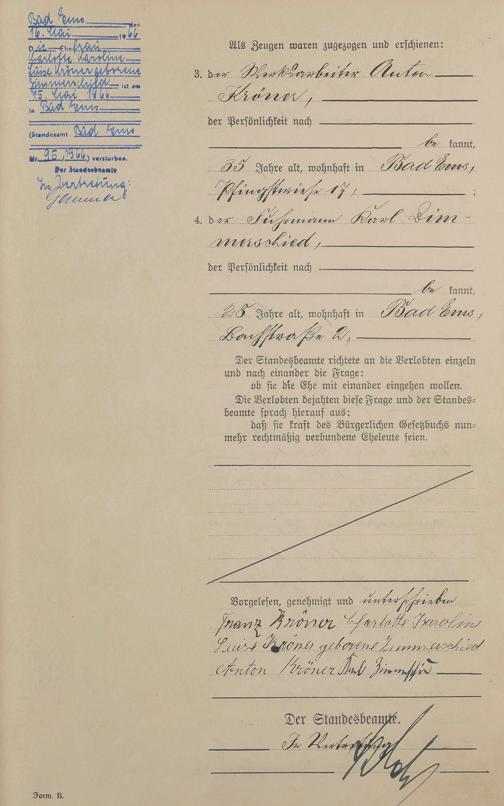 Bad Ems, den
16. Mai 1966
Die Ehefrau
Charlotte Karoline
Luise Kröner geborene
Zimmerschied ist am
15. Mai 1966
in Bad Ems
(Standesamt Bad Ems
Nr. 95/1966) verstorben.
Der Standesbeamte
In Vertretung:
Als Zeugen waren zugezogen und erschienen:
3. der Werksarbeiter Anton
Kröner,
der Persönlichkeit nach
be kannt,
35 Jahre alt, wohnhaft in Bad Ems,
Pfingstwiese 17, ;
4. der Fuhrmann Karl Zim-
merschied,
der Persönlichkeit nach
be kannt,
28 Jahre alt, wohnhaft in Bad Ems,
Bachstraße 2,
Der Standesbeamte richtete an die Verlobten einzeln
und nach einander die Frage:
ob sie die Ehe mit einander eingehen wollen.
Die Verlobten bejahten diese Frage und der Standes-
beamte sprach hierauf aus:
daß sie kraft des Bürgerlichen Gesetzbuchs nun-
mehr rechtmäßig verbundene Eheleute seien.
Vorgelesen, genehmigt und unterschrieben
Franz Kröner Charlotte Karolin
Luise Kröner geborene Zimmerschied
Anton Kröner Karl Zimmerschied
Der Standesbeamte.
In Vertretung
Form. B.